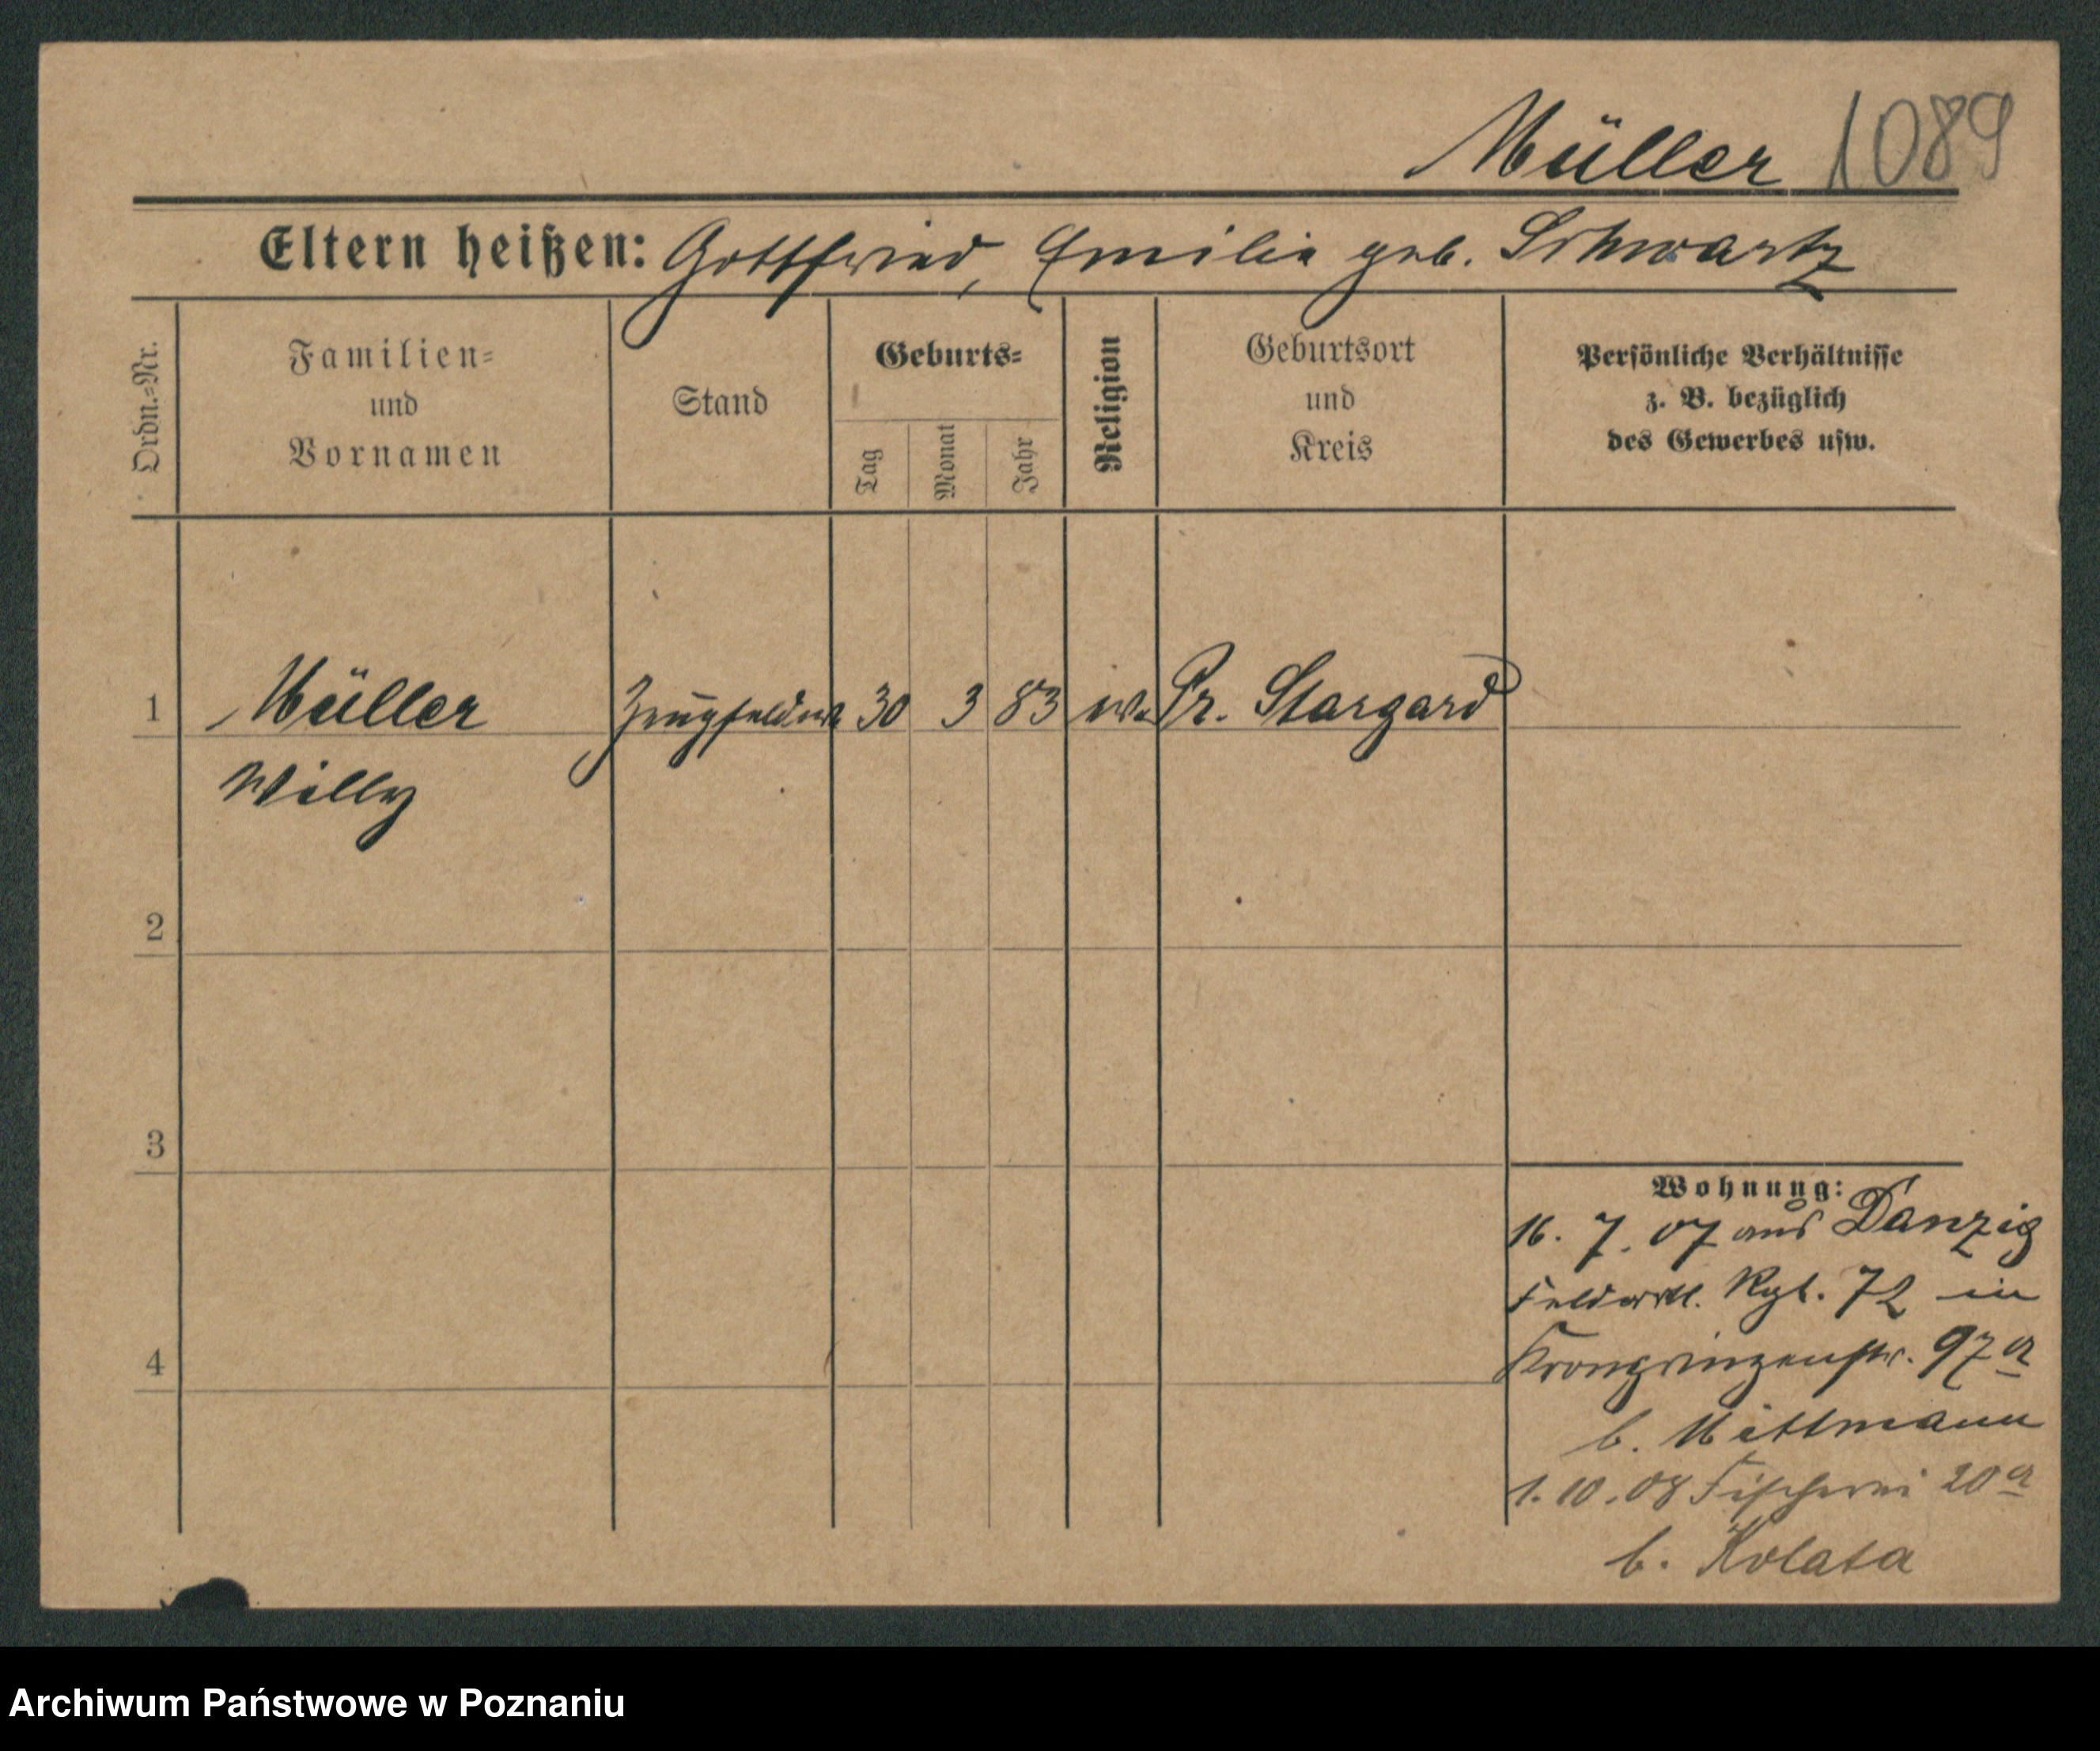 Müller 1089
Eltern heißen: Gottfried, Emilie geb. Schwartz
Ordn.=Nr.
Familien=
und
Vornamen
Stand
Geburts=
Tag
Monat
Jahr
Religion
Geburtsort
und
Kreis
Persönliche Verhältnisse
z. B. bezüglich
des Gewerbes usw.
1 Müller 30 3 83 ev. Pr. Stargard
Willy
2
3
4
Wohnung:
16. 7. 07 aus Danzig
Rgt. 72 in
Kronprinzenstr. 97a
b. Mittmann
1. 10. 08 Fischerei 20a
b. Kolata
Archiwum Państwowe w Poznaniu